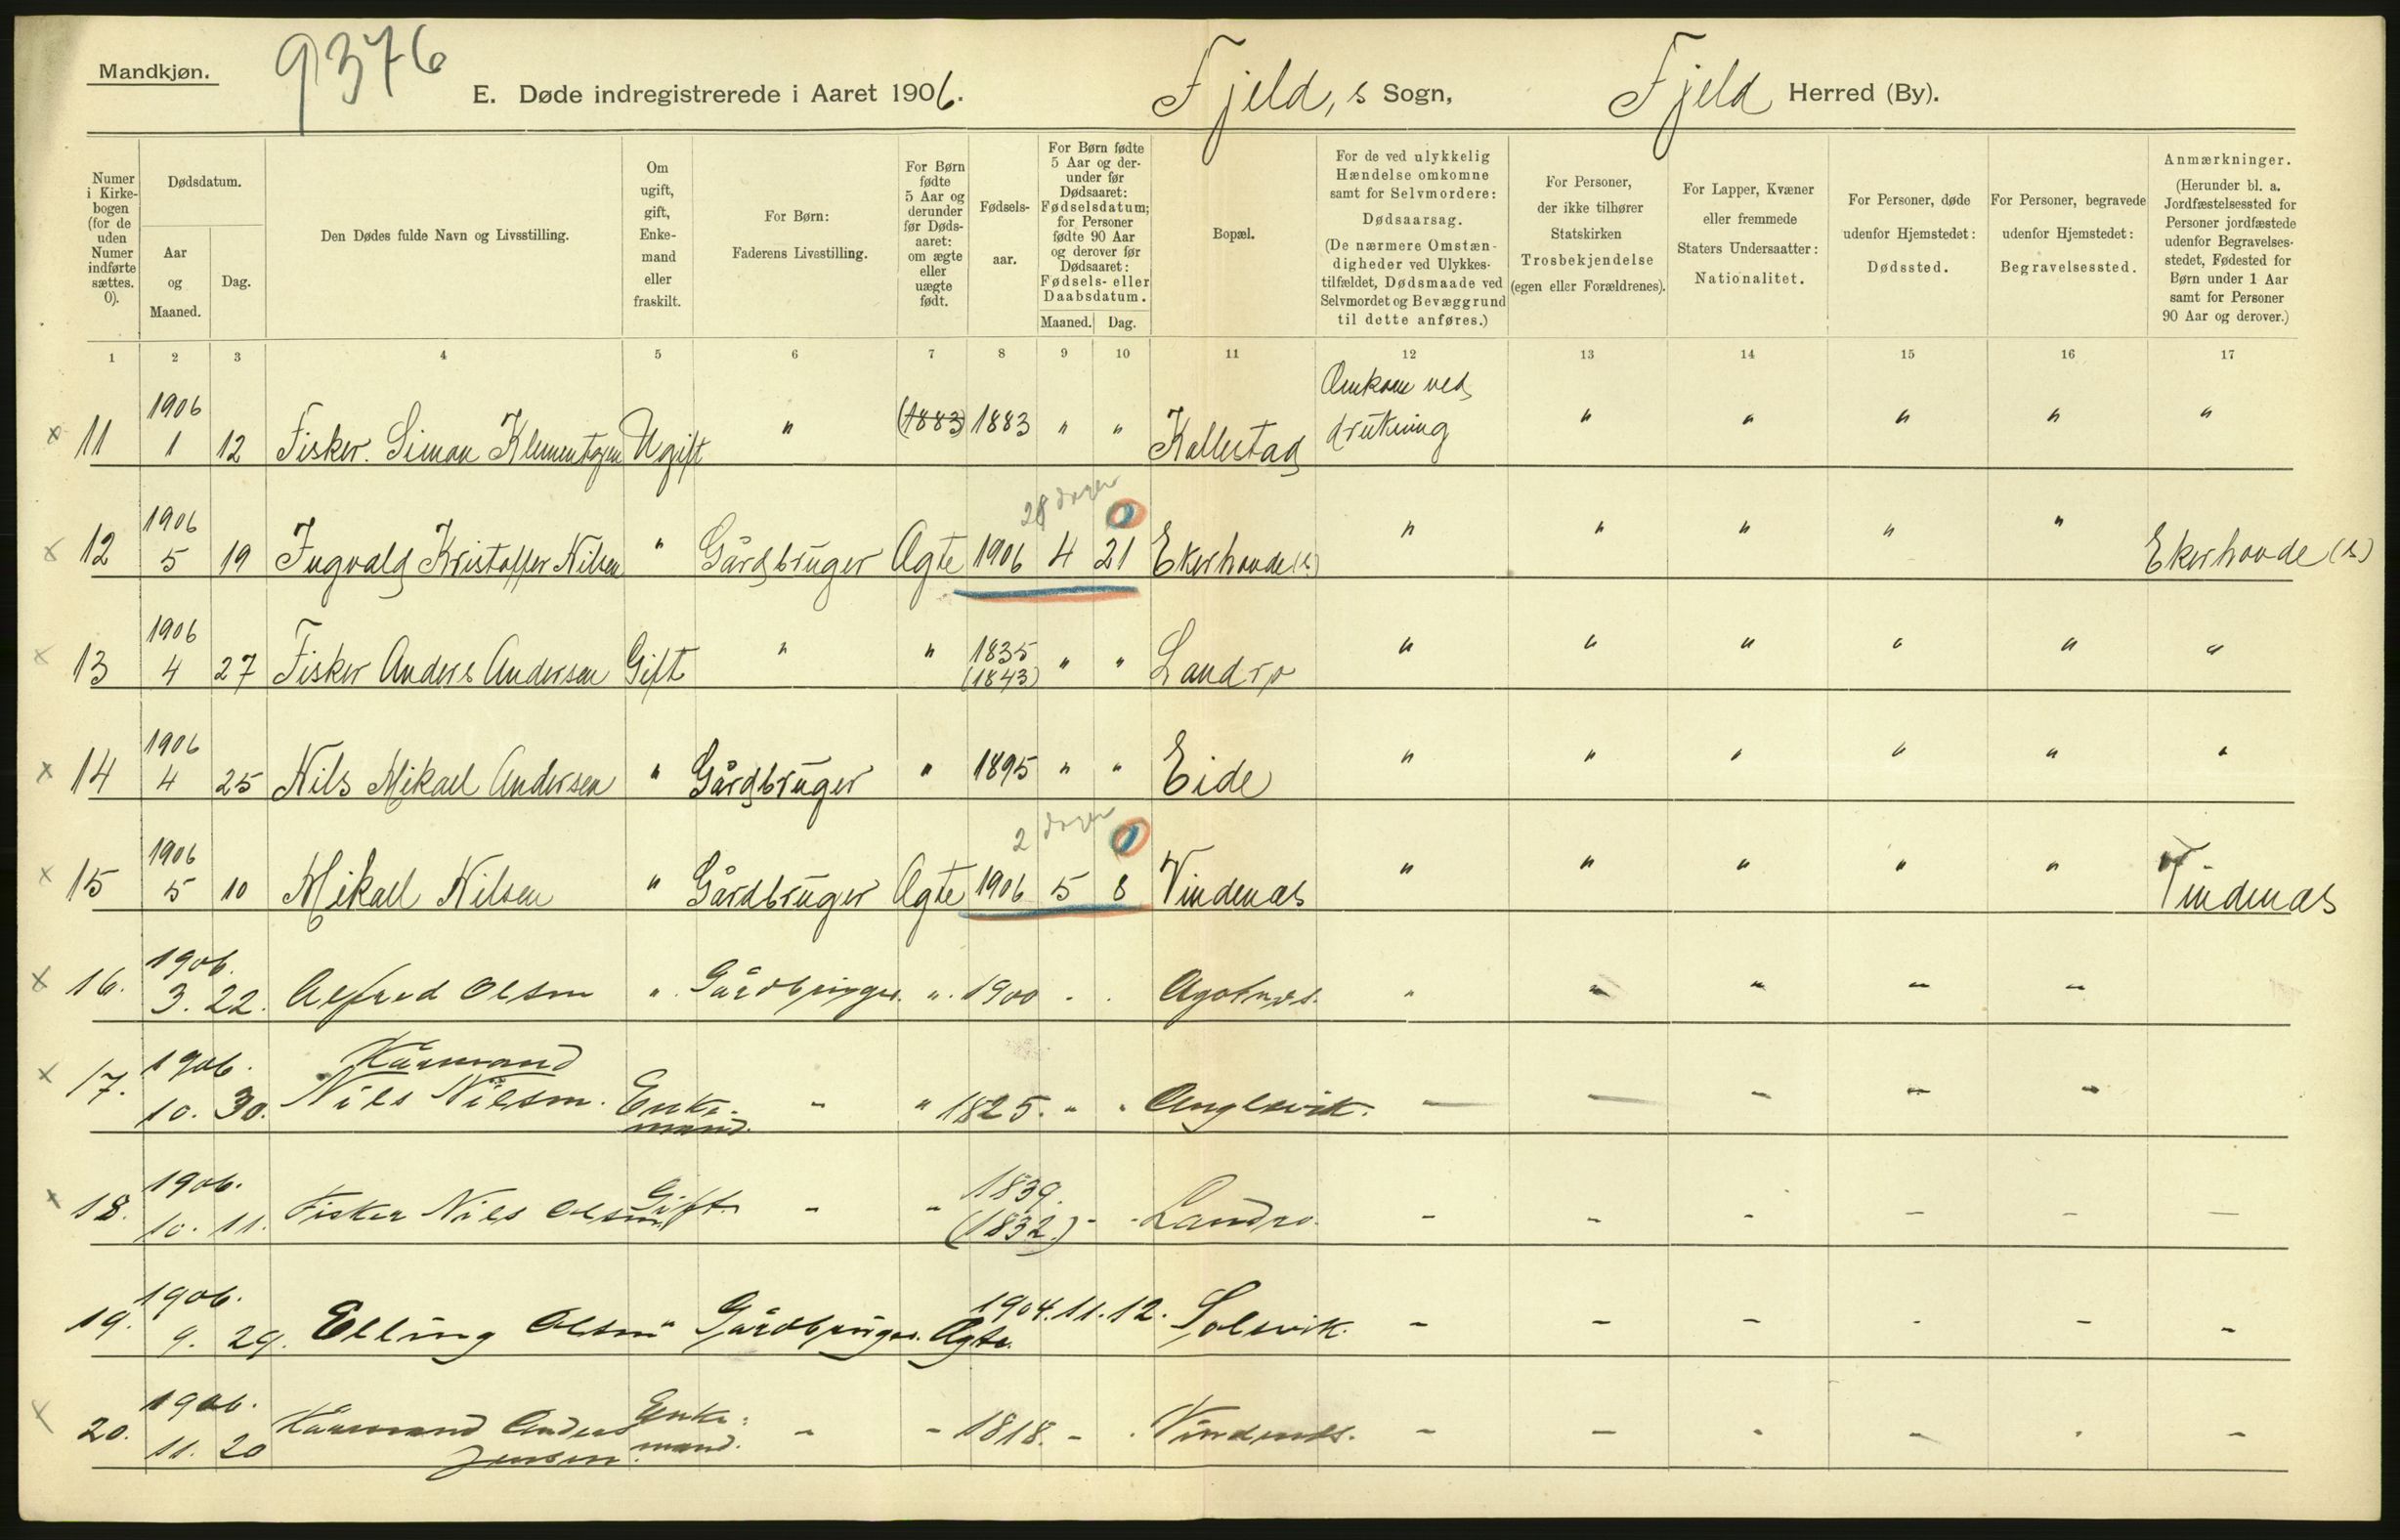 Mandkjøn.
9376
E. Døde indregistrerede i Aaret 1906. Fjeld, s Sogn, Fjeld Herred (By).
Numer i Kirke-bogen (for de uden Numer indførte sættes. 0).
Dødsdatum.
Aar og Maaned.
Dag.
Den Dødes fulde Navn og Livsstilling.
Om ugift, gift, Enke-mand eller fraskilt.
For Børn: Faderens Livsstilling.
For Børn fødte 5 Aar og derunder før Døds-aaret: om ægte eller uægte født.
Fødsels-aar.
For Børn fødte 5 Aar og der-under før Dødsaaret: Fødselsdatum; for Personer fødte 90 Aar og derover før Dødsaaret: Fødsels- eller Daabsdatum.
Maaned. Dag.
Bopæl.
For de ved ulykkelig Hændelse omkomne samt for Selvmordere: Dødsaarsag. (De nærmere Omstæn-digheder ved Ulykkes-tilfældet, Dødsmaade ved Selvmordet og Bevæggrund til dette anføres.)
For Personer, der ikke tilhører Statskirken Trosbekjendelse (egen eller Forældrenes).
For Lapper, Kvæner eller fremmede Staters Undersaatter: Nationalitet.
For Personer, døde udenfor Hjemstedet: Dødssted.
For Personer, begravede udenfor Hjemstedet: Begravelsessted.
Anmærkninger. (Herunder bl. a. Jordfæstelsessted for Personer jordfæstede udenfor Begravelses-stedet, Fødested for Børn under 1 Aar samt for Personer 90 Aar og derover.)
1 2 3 4 5 6 7 8 9 10 11 12 13 14 15 16 17
x 11 1906 1 12 Fisker. Simon Klementsen Ugift " (1883) 1883 " " Kallestad Omkom ved drukning " " " " "
28 dager 0
x 12 1906 5 19 Ingvald Kristoffer Nilsen " Gårdbruger Ægte 1906 4 21 Ekerhovde (s) " " " " " Ekerhovde (s)
x 13 1906 4 27 Fisker Anders Andersen Gift " " 1835 (1843) " " Landrø " " " " " "
x 14 1906 4 25 Nils Mikael Andersen " Gårdbruger " 1895 " " Eide " " " " " "
2 dager 0
x 15 1906 5 10 Mikael Nilsen " Gårdbruger Ægte 1906 5 8 Vindenæs " " " " " Vindenæs
x 16. 1906. 3. 22. Alfred Olsen ". Gårdbruger. ". 1900 - . Agotnæs. " " " " "
x 17. 1906. 10. 30. Kårmand Nils Nilsen. Enke-mand. - " 1825. " " Anglevik. - - - - -
x 18. 1906. 10. 11. Fisker Nils Olsen Gift. - " 1839. (1832.) - - Landro. - - - - - -
19. 1906. 9. 29. Elling Olsen " Gårdbruger. Ægte. 1904. 11. 12. Solsvik. - - - - - -
x 20. 1906. 11. 20 Kårmand Anders Jensen Enke-mand. - - 1818. - . Vindenes. - - - - - -